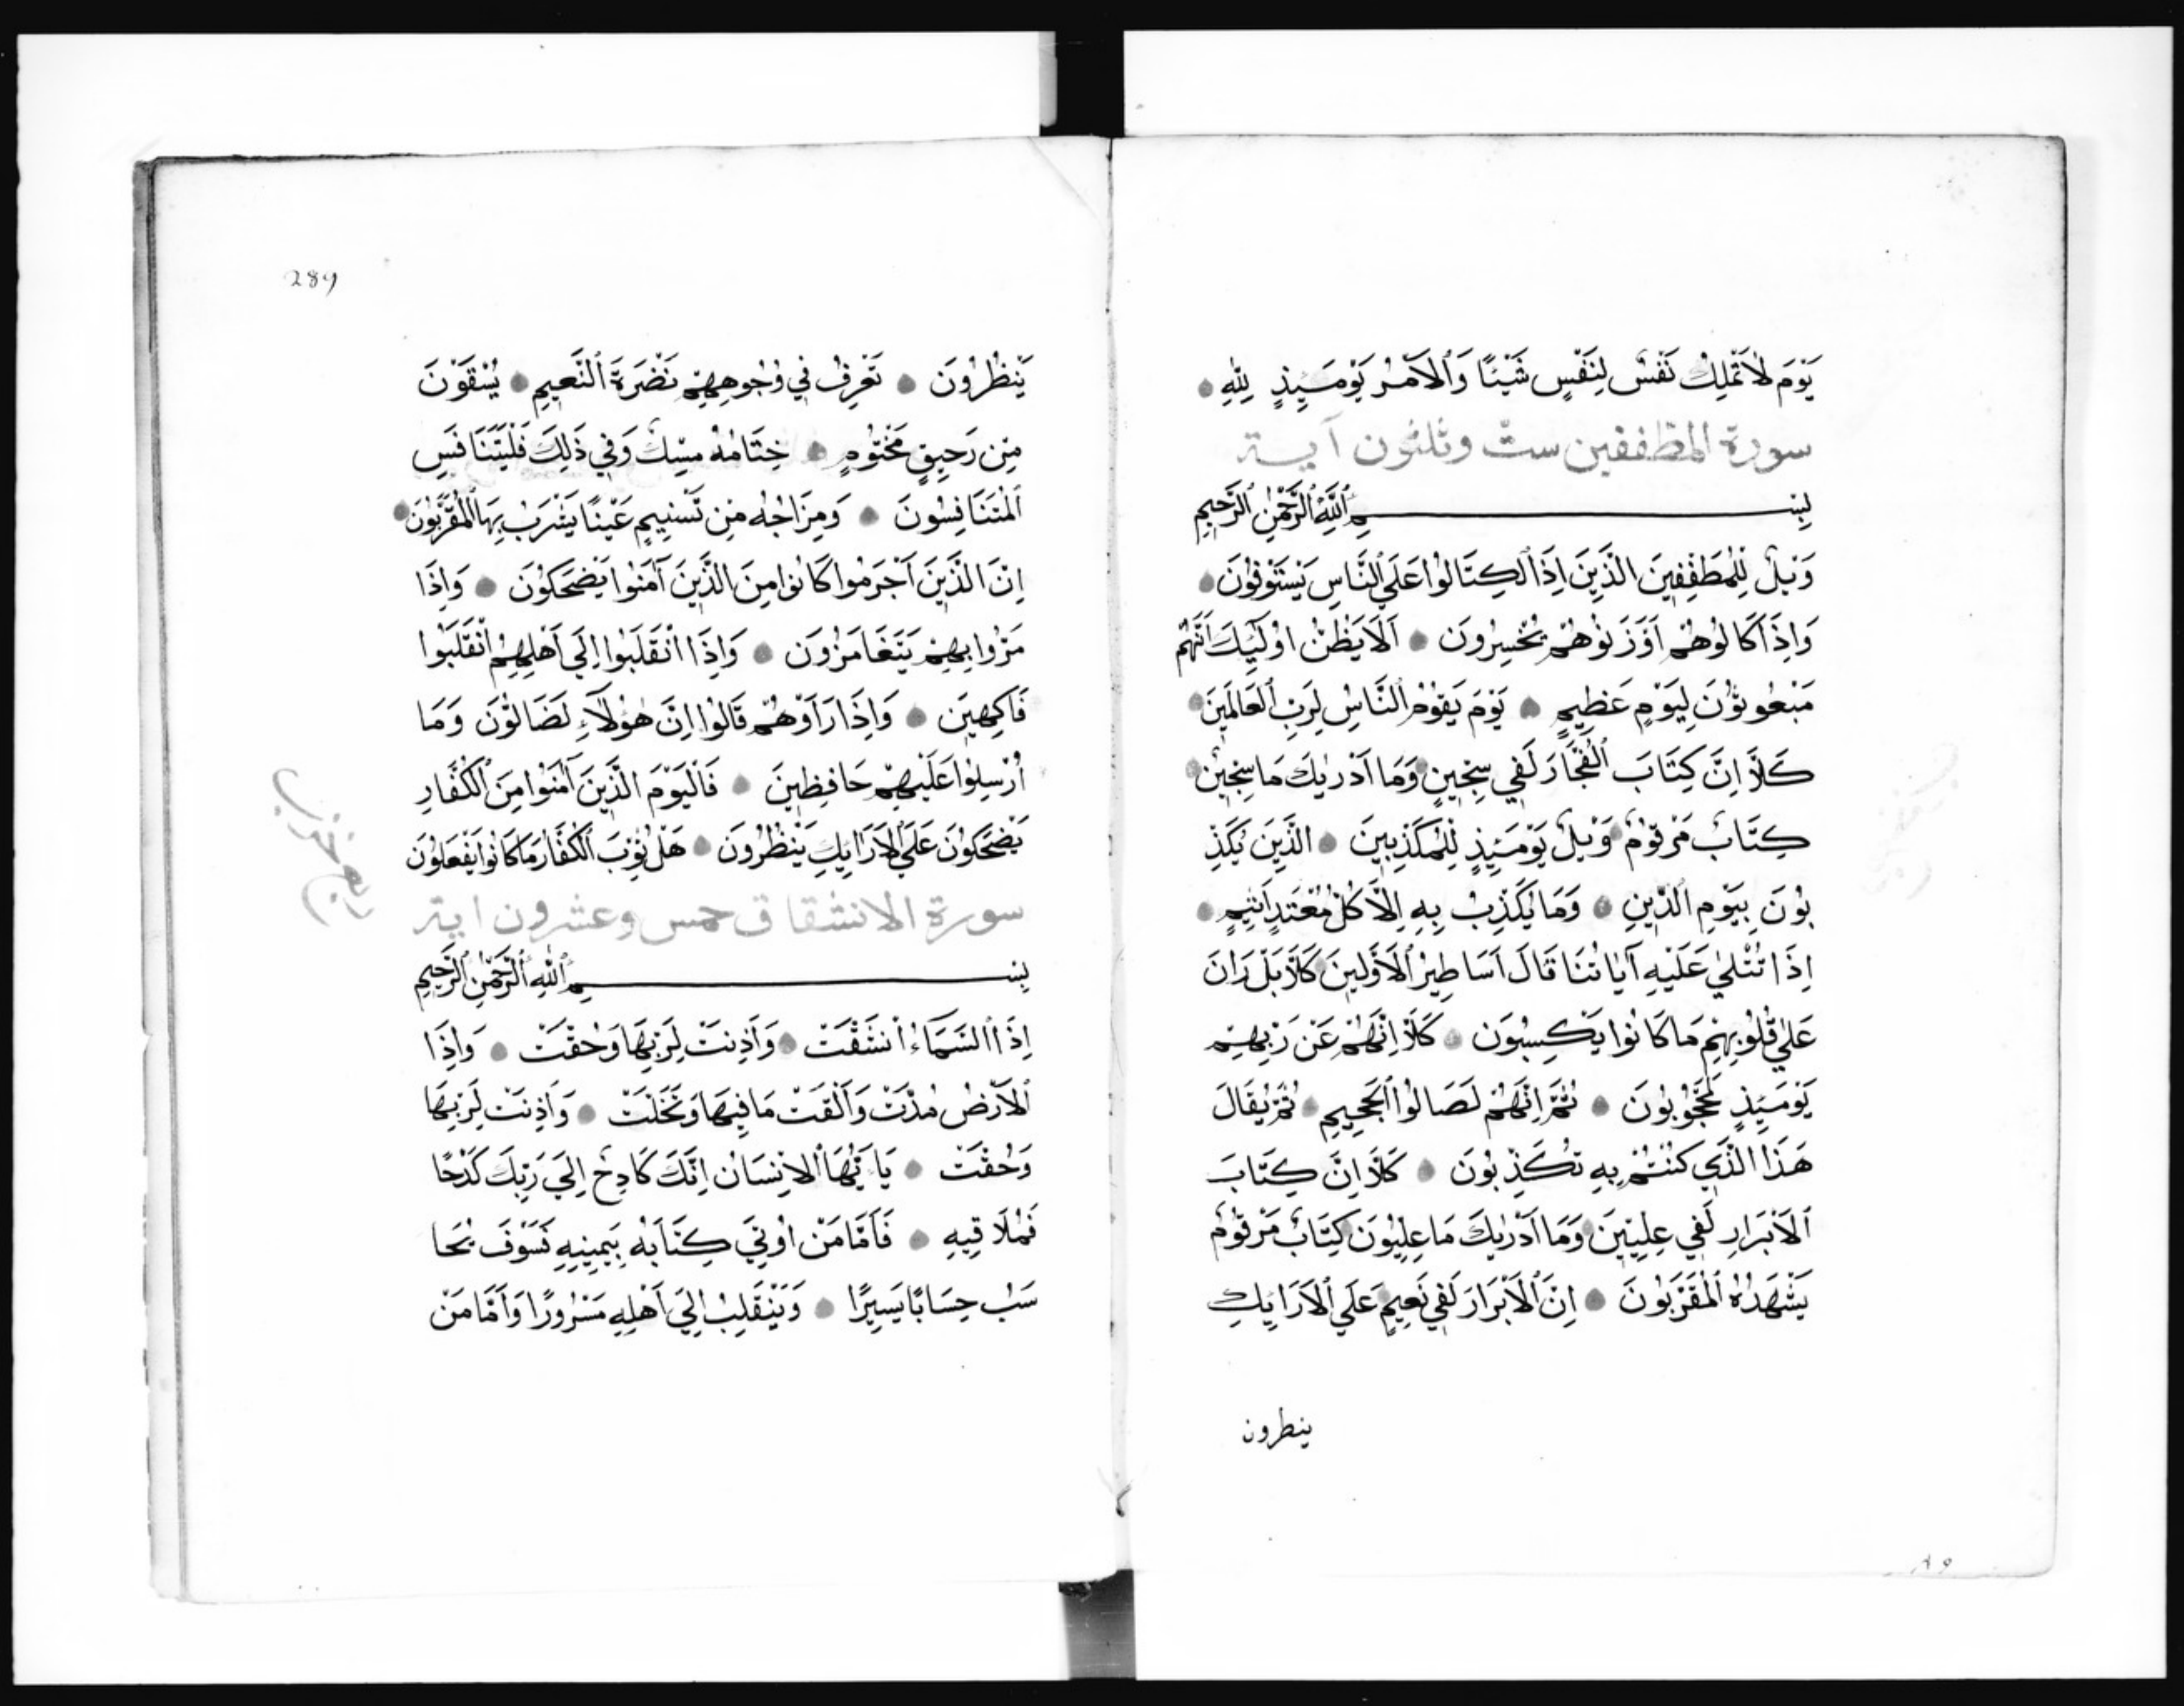 يَوْمَ لَا تَمْلِكُ نَفْسٌ لِنَفْسٍ شَيْئًا وَٱلْاَمْرُ يَوْمَئِذٍ لِلّٰهِ
سورة المطففين ستّ وثلثون آية
بِسْمِ ٱللَّهِ ٱلرَّحْمٰنِ ٱلرَّحِيمِ
وَيْلٌ لِلْمُطَفِّفِينَ الَّذِينَ اِذَا ٱكْتَالُوا عَلَي ٱلنَّاسِ يَسْتَوْفُونَ
وَاِذَا كَالُوهُمْ اَوْ وَزَنُوهُمْ يُخْسِرُونَ اَلَا يَظُنُّ اُولَٰئِكَ اَنَّهُمْ
مَبْعُوثُونَ لِيَوْمٍ عَظِيمٍ يَوْمَ يَقُومُ ٱلنَّاسُ لِرَبِّ ٱلْعَالَمِينَ
كَلَّا اِنَّ كِتَابَ ٱلْفُجَّارِ لَفِي سِجِّينٍ وَمَا اَدْرٰيكَ مَا سِجِّينٌ
كِتَابٌ مَرْقُومٌ وَيْلٌ يَوْمَئِذٍ لِلْمُكَذِّبِينَ الَّذِينَ يُكَذِّ
بُونَ بِيَوْمِ ٱلدِّينِ وَمَا يُكَذِّبُ بِهِ اِلَّا كُلُّ مُعْتَدٍ اَثِيمٍ
اِذَا تُتْلٰي عَلَيْهِ آيَاتُنَا قَالَ اَسَاطِيرُ ٱلْاَوَّلِينَ كَلَّا بَلْ رَانَ
عَلٰي قُلُوبِهِمْ مَا كَانُوا يَكْسِبُونَ كَلَّا اِنَّهُمْ عَنْ رَبِّهِمْ
يَوْمَئِذٍ لَمَحْجُوبُونَ ثُمَّ اِنَّهُمْ لَصَالُوا ٱلْجَحِيمِ ثُمَّ يُقَالُ
هَذَا الَّذِي كُنْتُمْ بِهِ تُكَذِّبُونَ كَلَّا اِنَّ كِتَابَ
ٱلْاَبْرَارِ لَفِي عِلِّيِّينَ وَمَا اَدْرٰيكَ مَا عِلِّيُّونَ كِتَابٌ مَرْقُومٌ
يَشْهَدُهُ ٱلْمُقَرَّبُونَ اِنَّ ٱلْاَبْرَارَ لَفِي نَعِيمٍ عَلَي ٱلْاَرَايِكِ
ينطرون
289
يَنْظُرُونَ تَعْرِفُ فِي وُجُوهِهِمْ نَضْرَةَ ٱلنَّعِيمِ يُسْقَوْنَ
مِنْ رَحِيقٍ مَخْتُومٍ خِتَامُهُ مِسْكٌ وَفِي ذَلِكَ فَلْيَتَنَافَسِ
ٱلْمُتَنَافِسُونَ وَمِزَاجُهُ مِنْ تَسْنِيمٍ عَيْنًا يَشْرَبُ بِهَا ٱلْمُقَرَّبُونَ
اِنَّ الَّذِينَ اَجْرَمُوا كَانُوا مِنَ الَّذِينَ آمَنُوا يَضْحَكُونَ وَاِذَا
مَرُّوا بِهِمْ يَتَغَامَزُونَ وَاِذَا ٱنْقَلَبُوا اِلَي اَهْلِهِمُ ٱنْقَلَبُوا
فَاكِهِينَ وَاِذَا رَاَوْهُمْ قَالُوا اِنَّ هٰؤُلَاءِ لَضَالُّونَ وَمَا
اُرْسِلُوا عَلَيْهِمْ حَافِظِينَ فَالْيَوْمَ الَّذِينَ آمَنُوا مِنَ ٱلْكُفَّارِ
يَضْحَكُونَ عَلَي ٱلْاَرَايِكِ يَنْظُرُونَ هَلْ ثُوِّبَ ٱلْكُفَّارُ مَا كَانُوا يَفْعَلُونَ
سورة الانشقاق خمس وعشرون اية
بِسْمِ ٱللّٰهِ ٱلرَّحْمٰنِ ٱلرَّحِيمِ
اِذَا ٱلسَّمَآءُ ٱنْشَقَّتْ وَاَذِنَتْ لِرَبِّهَا وَحُقَّتْ وَاِذَا
ٱلْاَرْضُ مُدَّتْ وَاَلْقَتْ مَا فِيهَا وَتَخَلَّتْ وَاَذِنَتْ لِرَبِّهَا
وَحُقَّتْ يَا اَيُّهَا ٱلْاِنْسَانُ اِنَّكَ كَادِحٌ اِلَي رَبِّكَ كَدْحًا
فَمُلَاقِيهِ فَاَمَّا مَنْ اُوتِيَ كِتَابَهُ بِيَمِينِهِ فَسَوْفَ يُحَا
سَبُ حِسَابًا يَسِيرًا وَيَنْقَلِبُ اِلَي اَهْلِهِ مَسْرُورًا وَاَمَّا مَنْ